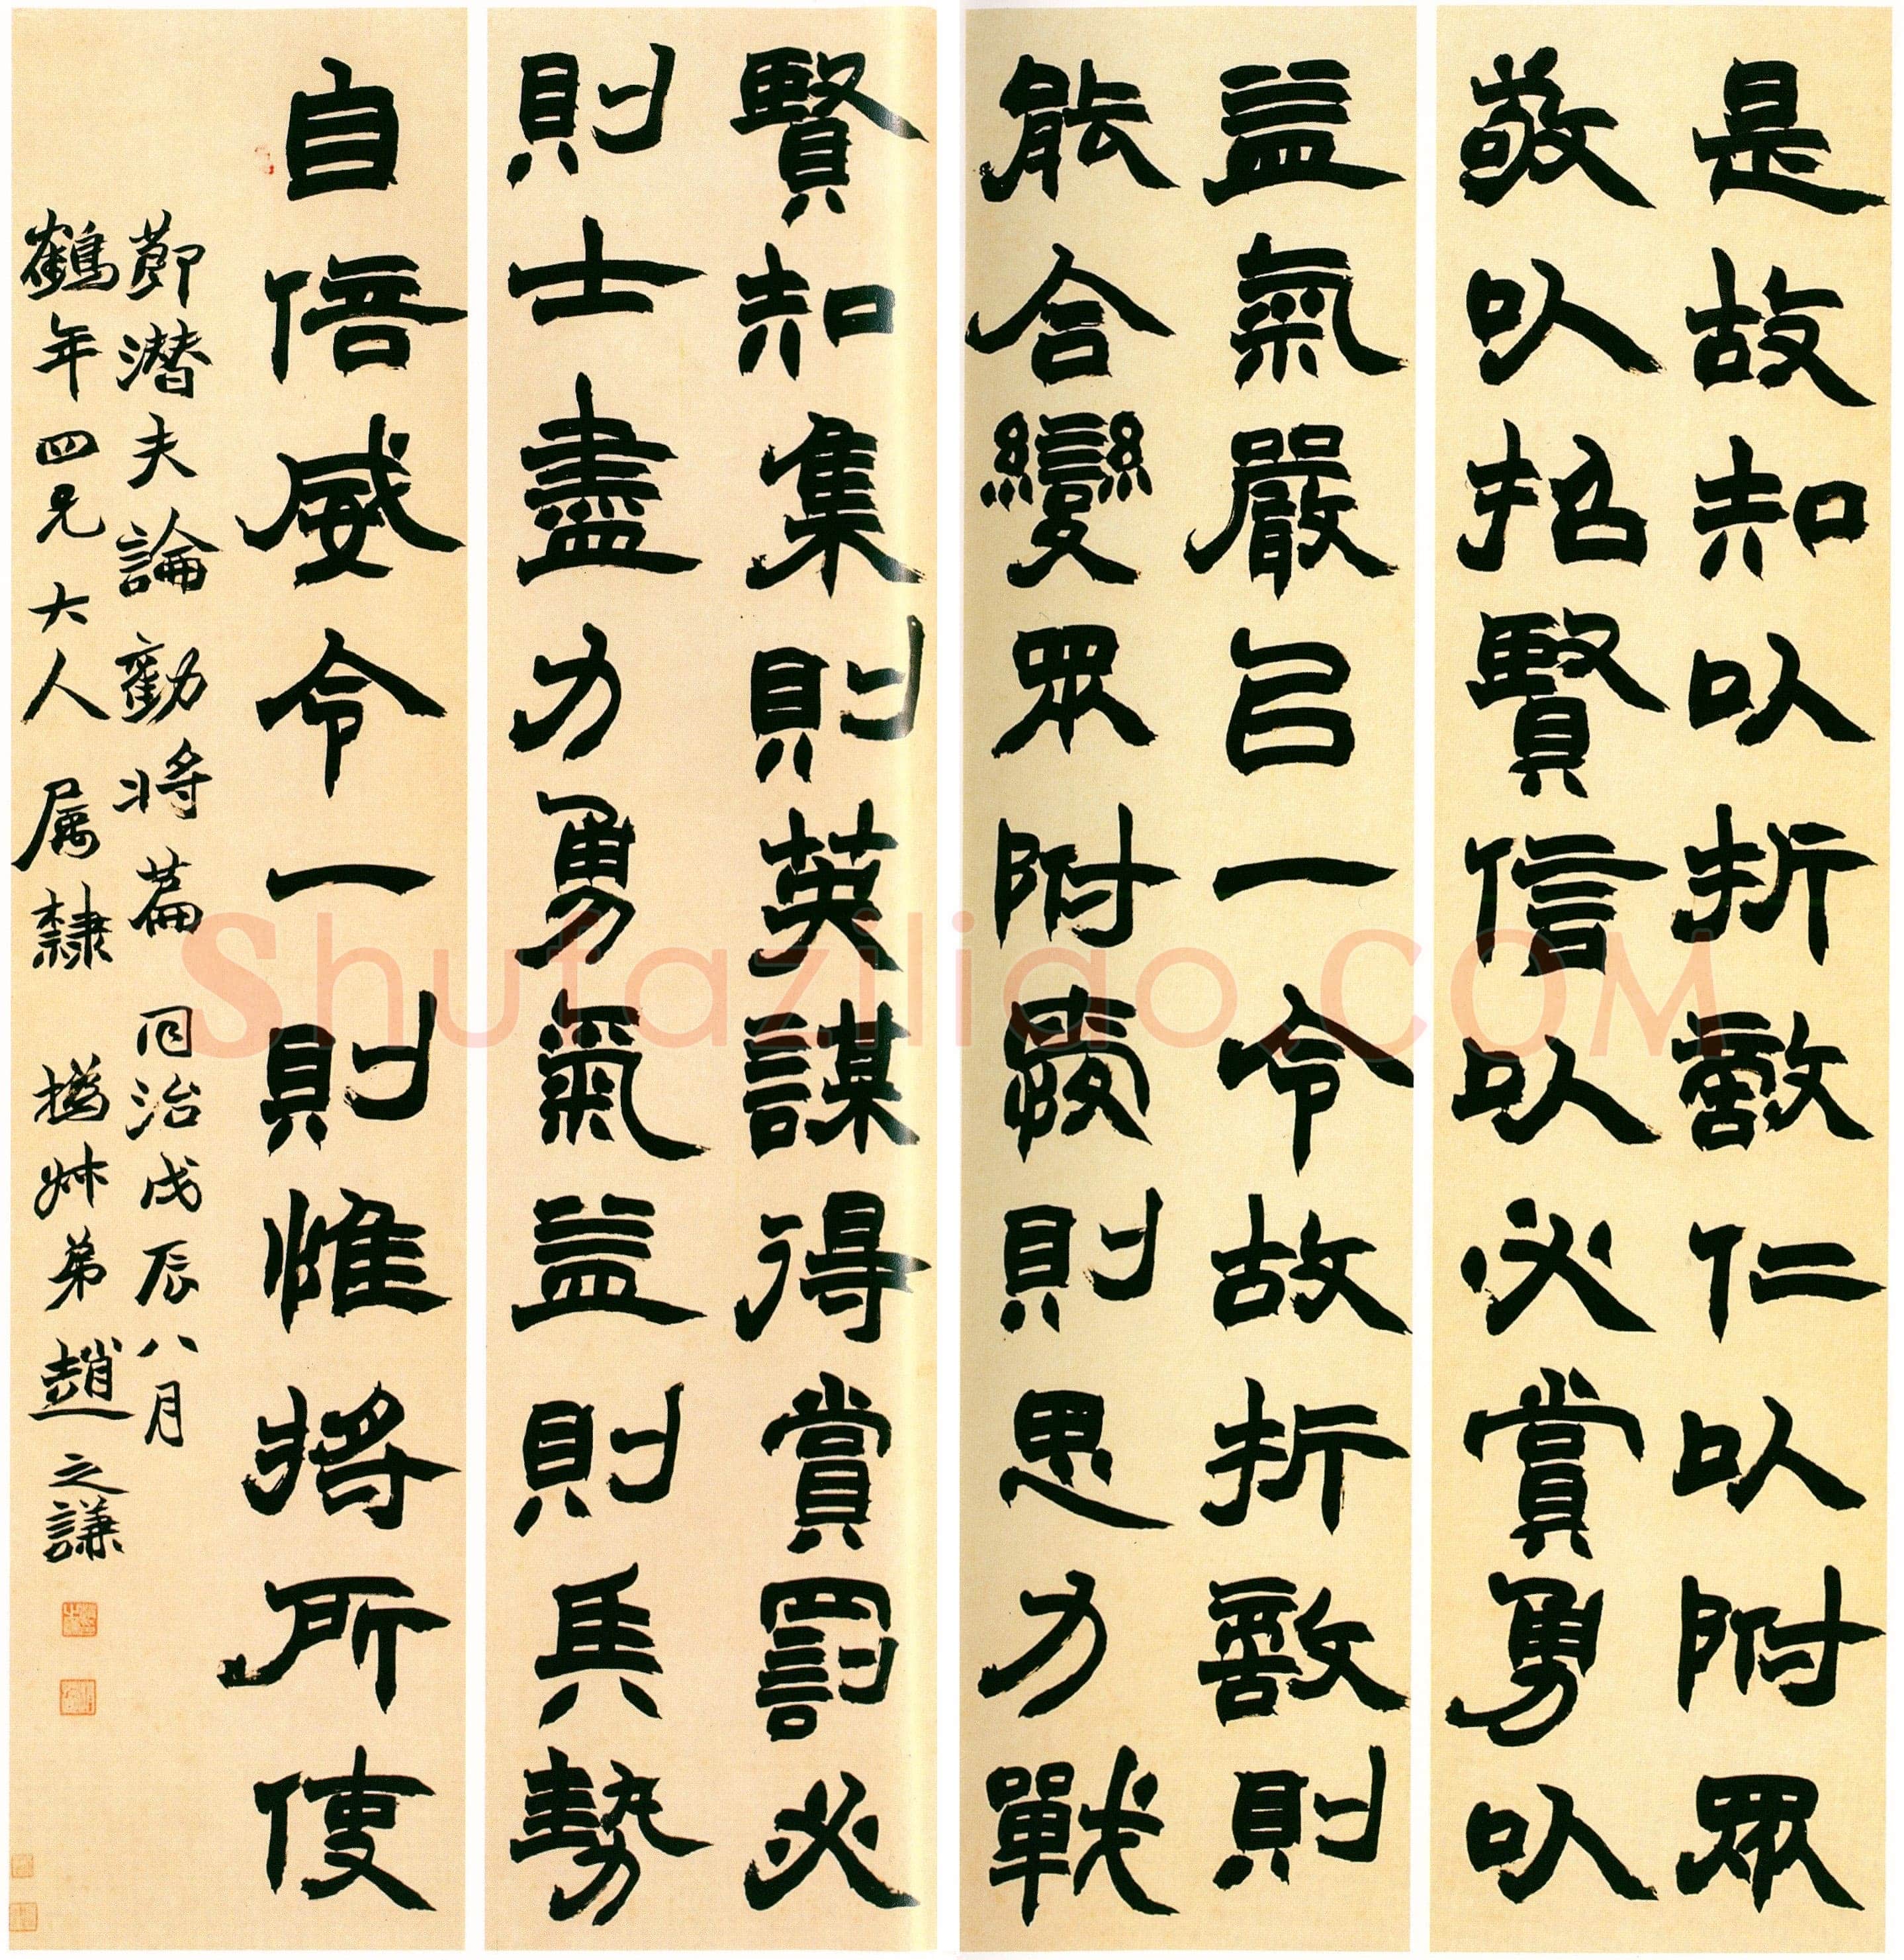 是故知以折敵仁以附眾
敬以招賢信以必賞勇以
益氣嚴㠯一令故折敵則
能合變眾附愛則思力戰
賢知集則英謀得賞罰必
則士盡力勇氣益則兵勢
自倍威令一則惟將所使
節潛夫論勸將篇 同治戊辰八月
鶴年四兄大人屬隸 撝叔弟趙之謙
Shufaziliao.COM